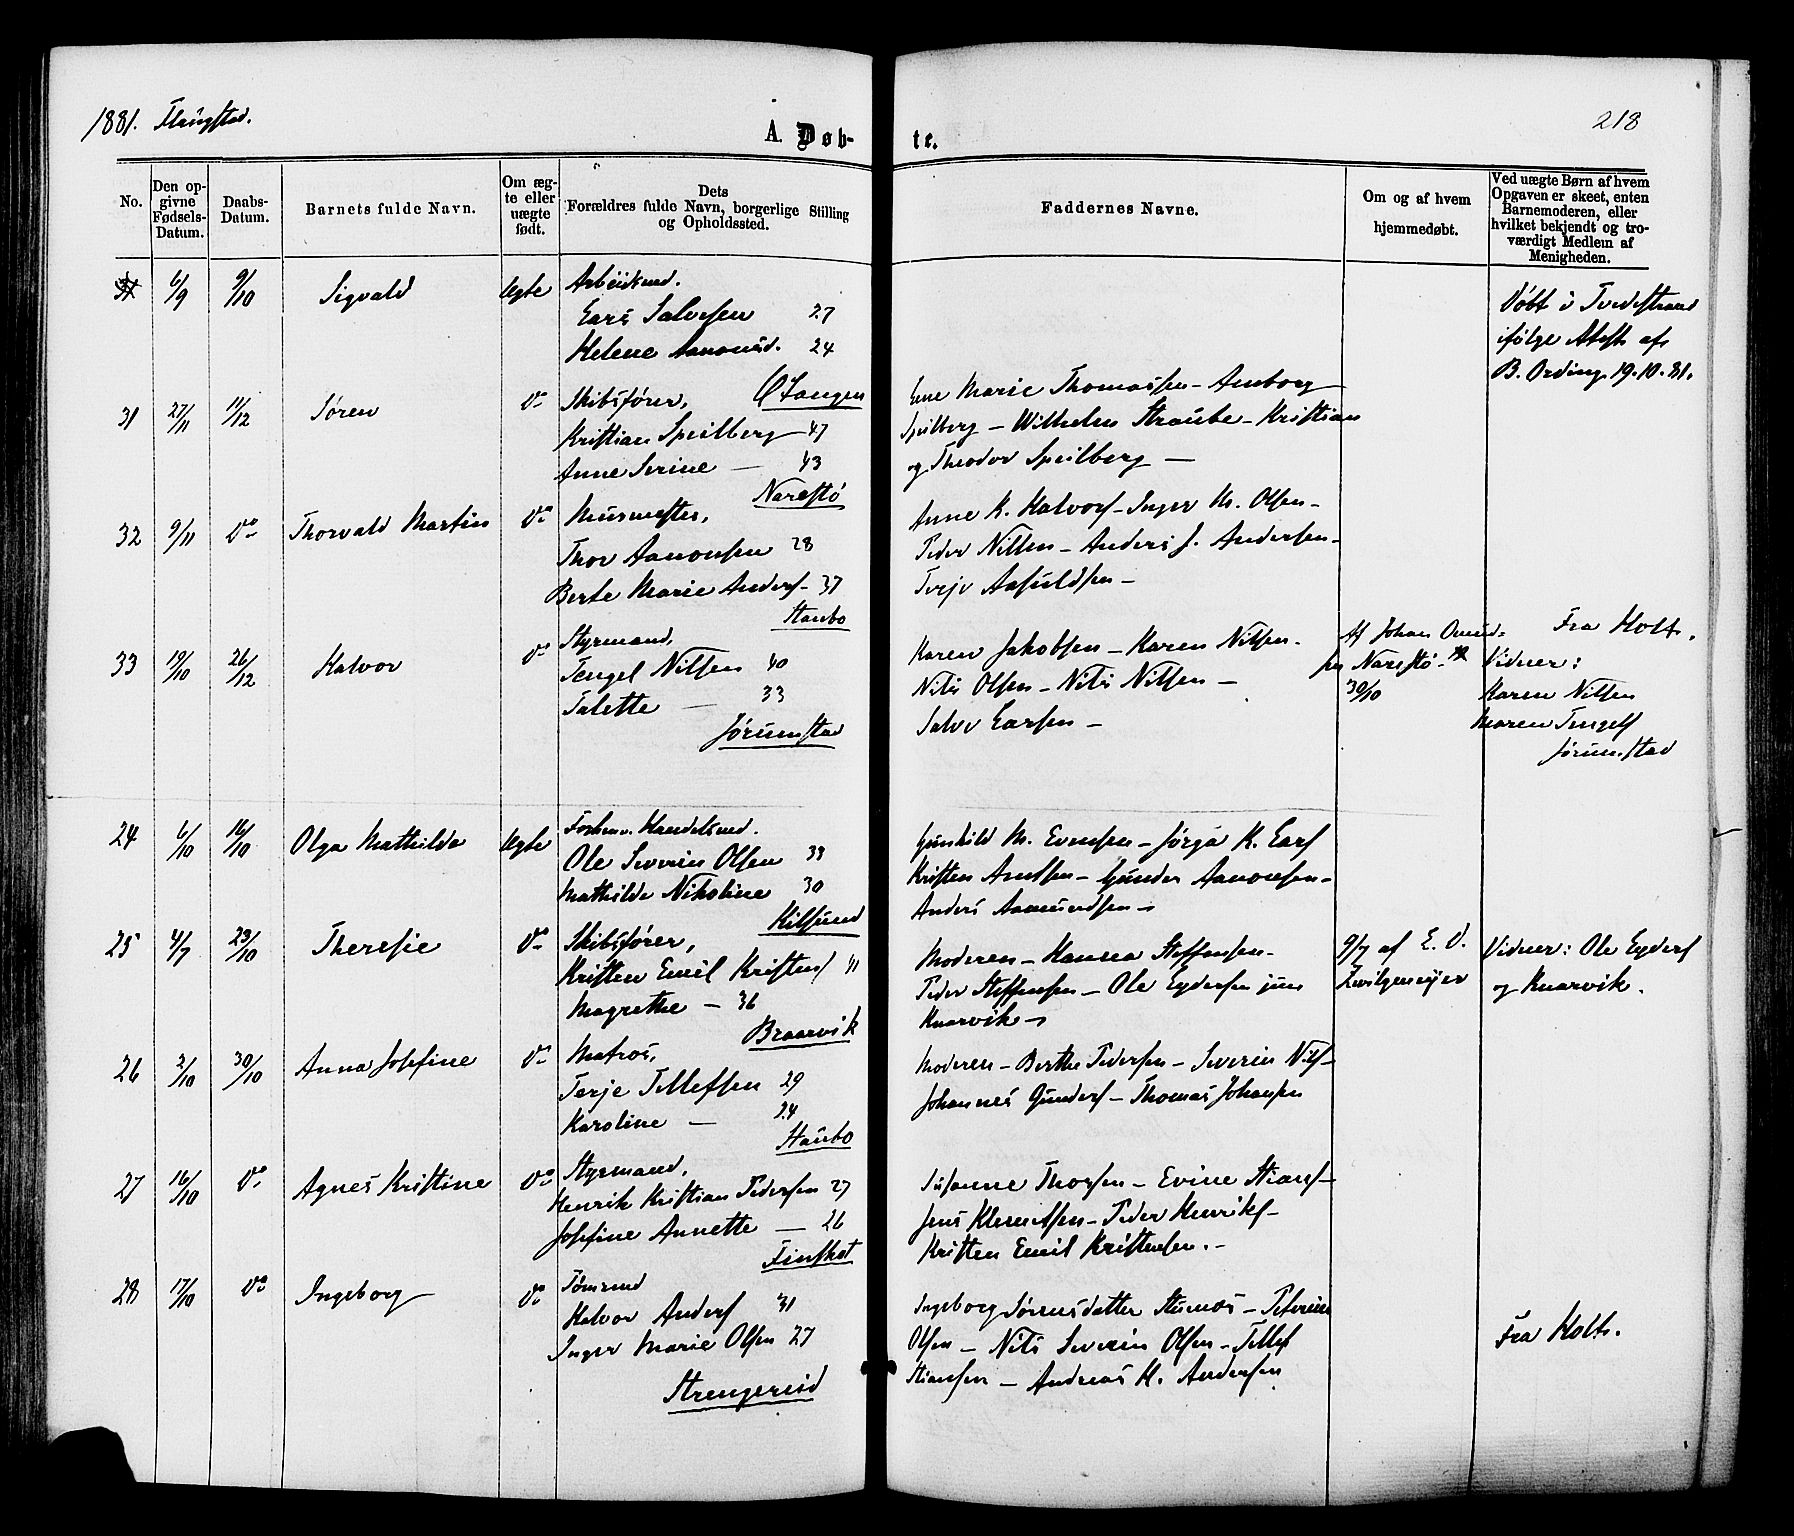 1881. Flangstad.
218
A. Døb-
te.
No.
Den op-
givne
Fødsels-
Datum.
Daabs-
Datum.
Barnets fulde Navn.
Om æg-
te eller
uægte
født.
Dets
Forældres fulde Navn, borgerlige Stilling
og Opholdssted.
Faddernes Navne.
Om og af hvem
hjemmedøbt.
Ved uægte Børn af hvem
Opgaven er skeet, enten
Barnemoderen, eller
hvilket bekjendt og tro-
værdigt Medlem af
Menigheden.
6/9 9/10 Sigvald Ægte Arbeidsmd.
Lars Salvesen 27
Helene Aanonsd. 24
Songen
Døbt i Tvedestrand
ifølge Atest af
B. Ording 19.10.81.
31 27/11 11/12 Søren Do Skibsfører,
Kristian Speilberg 47
Anne Serine — 43
Narestø
Ene Marie Thomassen - Amborg
Speilberg - Wilhelm Straube - Kristian
og Theodor Speilberg —
32 9/11 Do Thorvald Martin Do Murmester,
Thor Aanonsen 28
Berte Marie Anders- 37
Staubo
Anne K. Halvors- Inger M. Olsen -
Peder Nilsen - Anders J. Andersen -
Terje Aasuldsen -
33 19/10 26/12 Halvor Do Styrmand,
Tengel Nilsen 40
Talette — 33
Jørumstad
Karen Jakobsen - Karen Nilsen -
Nils Olsen - Nils Nilsen -
Salve Larsen -
Af Johan
Narestø
30/10
Fra Holt.
Vidner:
Karen Nilsen
Maren Tengels
Jørumstad
24 6/10 16/10 Olga Mathilde Ægte Forhenv. Handelsmd.
Ole Severin Olsen 33
Mathilde Nikoline 30
Kilsund
Gunhild M. Evensen - Jørga K. Lars
Kristen Arntsen - Gunder Aanonsen -
Anders Aamundsen -
25 4/7 23/10 Theresie Do Skibsfører,
Kristen Emil Kristens 41
Magrethe — 36
Braarvik
Moderen - Hansea Steffensen -
Peder Steffensen - Ole Eydersen jun
Knarvik -
9/7 af E. D.
Zwilgmeijer
Vidner: Ole Eyders
og Knarvik.
26 2/10 30/10 Anna Josefine Do Matros,
Terje Tellefsen 29
Karoline — 24
Staubo
Moderen - Berthe Pedersen - Severin Nils-
Johannes Gunders - Thomas Johansen
27 16/10 Do Agnes Kristine Do Styrmand,
Henrik Kristian Pedersen 27
Josefine Annette — 26
Finskot
Susanne Thorsen - Evine Stians-
Jens Klementsen - Peder Henriks-
Kristen Emil Kristensen. -
28 17/10 Do Ingeborg Do Tømrmd
Halvor Anders 31
Inger Marie Olsen 27
Strengereid
Ingeborg Sørensdatter - Peterine
Olsen - Nils Severin Olsen - Tellef
Stiansen - Andreas K. Andersen
Fra Holt.